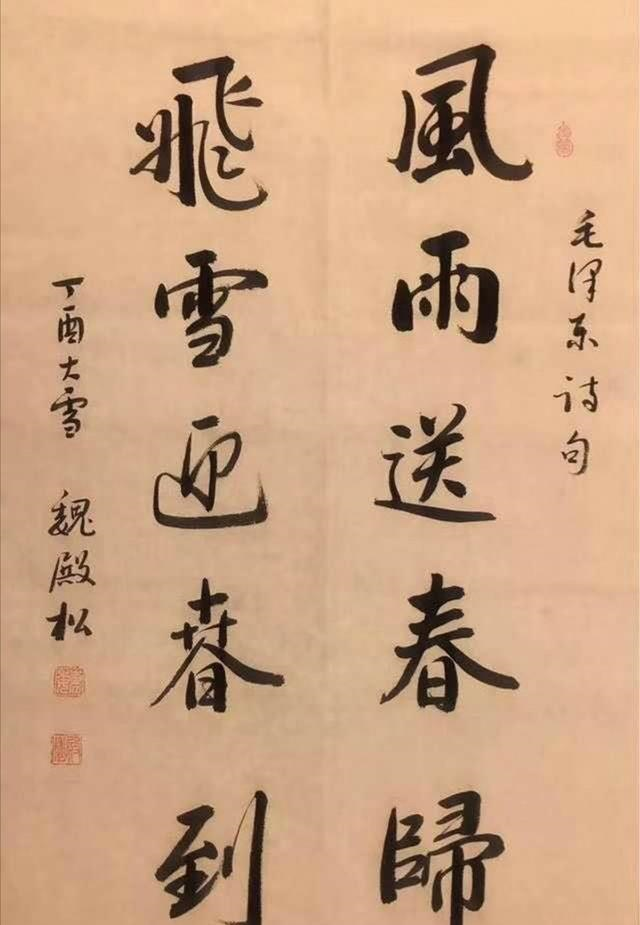 毛泽东诗句
風雨送春歸
飛雪迎春到
丁酉大雪 魏殿松